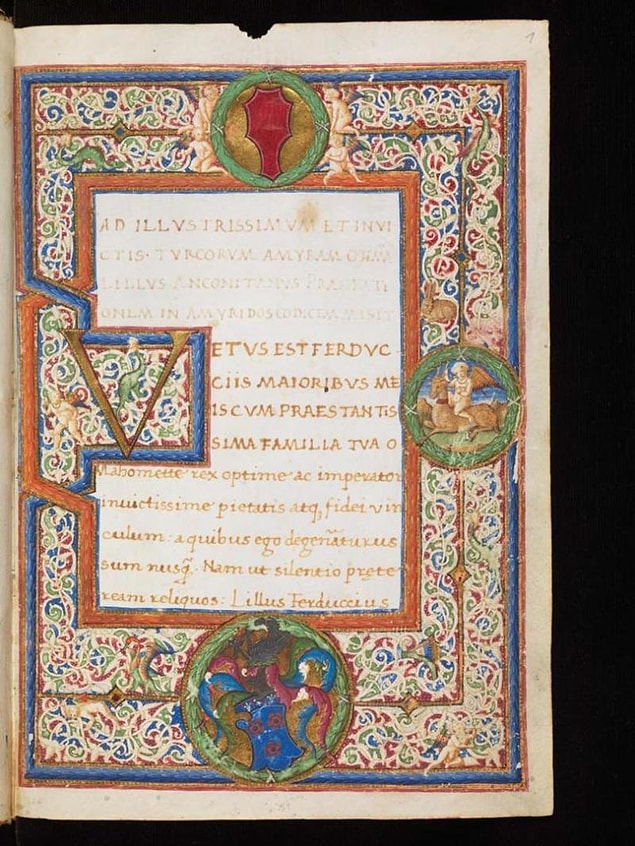 1
AD ILLVSTRISSIMVM ET INVI
CTIS· TVRCORVM AMYRAM
LILLVS ANCONITANVS PRAEFATI
ONEM IN AMYRIDOS CODICEM MISIT
VETVS EST FERDVC
CIIS MAIORIBVS ME
ISCVM PRAESTANTIS
SIMA FAMILIA TVA O
Mahomette rex optime ac imperator
inuictissime pietatis atq, fidei vin
culum: a quibus ego degen̄aturus
sum nusq̃. Nam ut silentio pręte
ream reliquos: Lillus Ferduccius